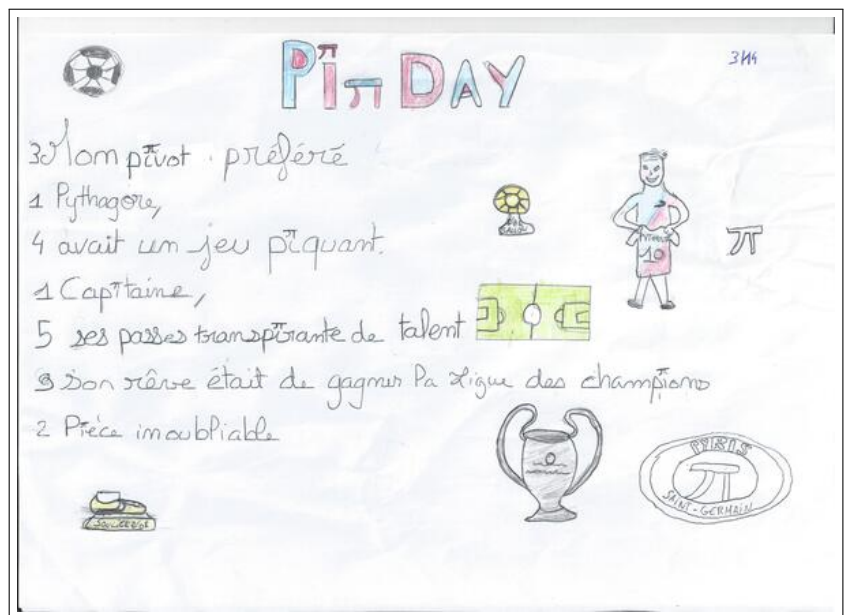 PiπDAY
3M4
3 Mon pivot préféré
1 Pythagore,
4 avait un jeu piquant.
1 Capitaine,
5 ses passes transpirante de talent
9 Son rêve était de gagner la ligue des champions
2 Pièce inoubliable
10
π
PARIS
π
SAINT-GERMAIN